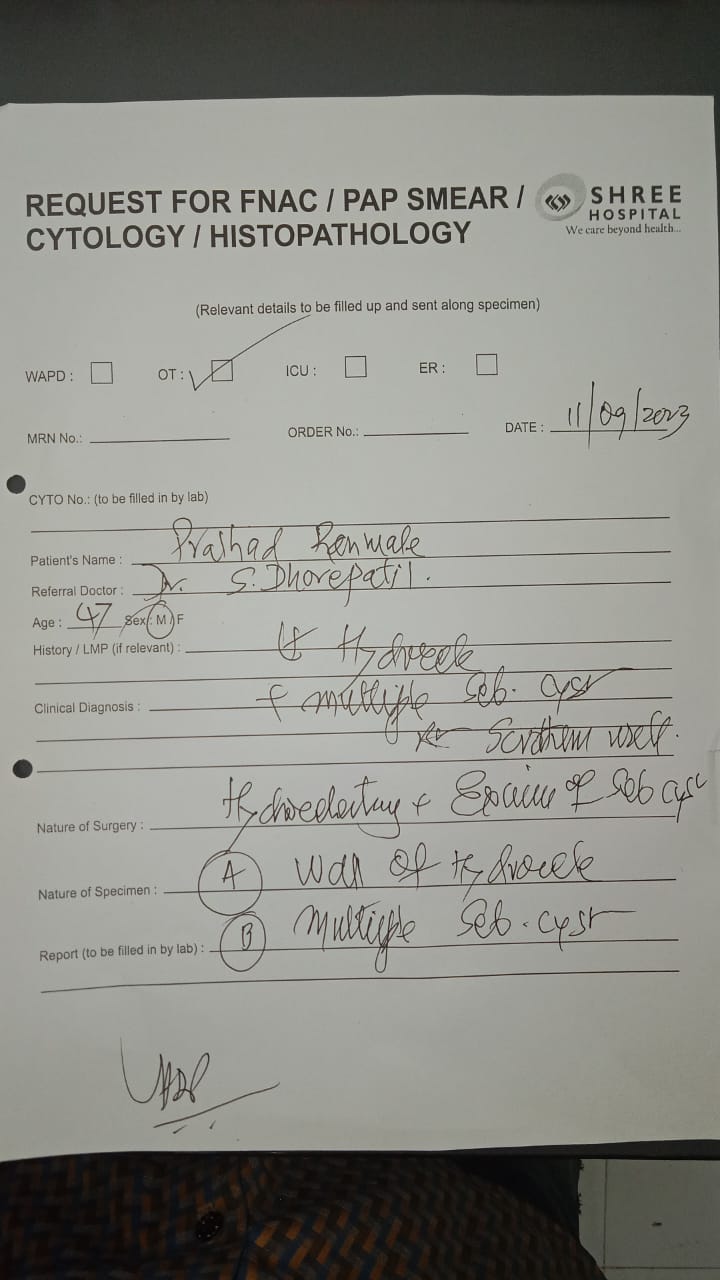 REQUEST FOR FNAC / PAP SMEAR /
CYTOLOGY / HISTOPATHOLOGY
SHREE
HOSPITAL
We care beyond health...
(Relevant details to be filled up and sent along specimen)
WAPD : OT : ICU : ER :
MRN No.: ORDER No.: DATE : 11/09/2023
CYTO No.: (to be filled in by lab)
Patient's Name : Prashad
Referral Doctor : Dr. S. Dhorepatil.
Age : 47 Sex : M / F
History / LMP (if relevant) : Hydrocele
Clinical Diagnosis : multiple Seb. cyst
Nature of Surgery : of Seb cyst
Nature of Specimen : A Wall of Hydrocele
Report (to be filled in by lab) : B Multiple Seb. cyst